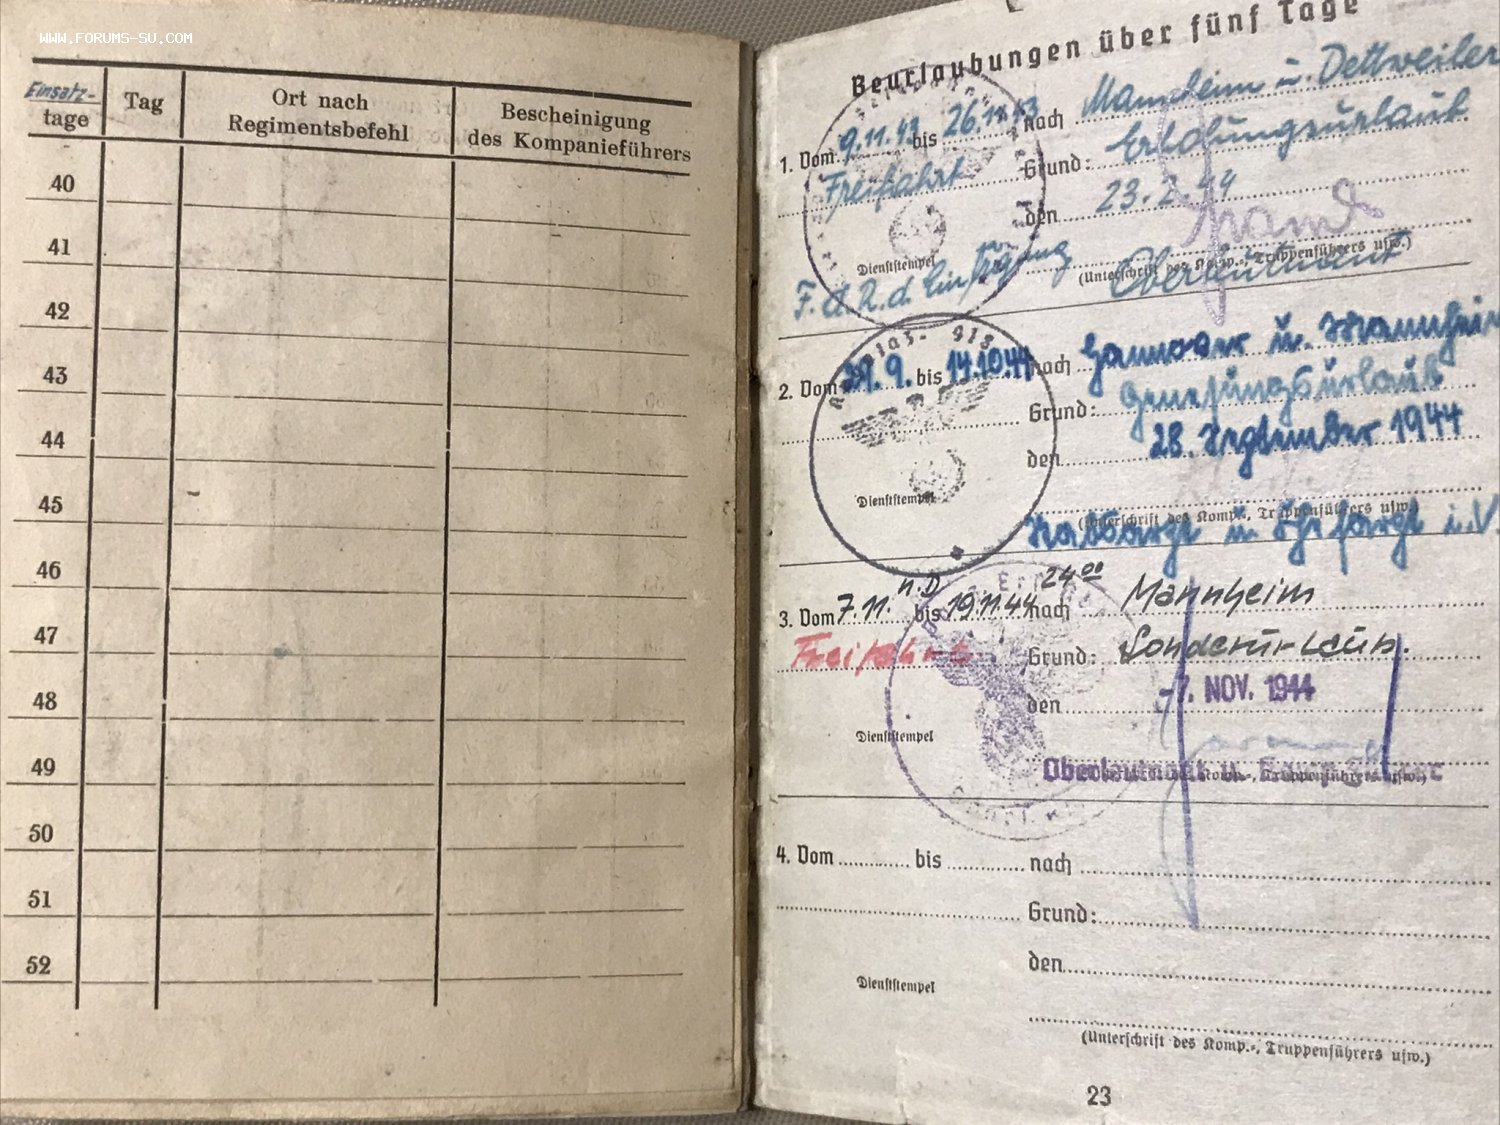 WWW.FORUMS-SU.COM
Einsatz-
tage
Tag
Ort nach
Regimentsbefehl
Bescheinigung
des Kompanieführers
40
41
42
43
44
45
46
47
48
49
50
51
52
Beurlaubungen über fünf Tage
1. Vom 9.11.43 bis 26.11.43 nach Mannheim u. Dettweiler
Freifahrt Grund: Erholungsurlaub
den 23.2.44
Dienststempel
(Unterschrift des Komp.-, Truppenführers usw.)
F. d. R. d. Eintragung Oberleutnant
2. Vom 29.9. bis 14.10.44 nach Hannover u. Mannheim
Grund: Genesungsurlaub
den 28. September 1944
Dienststempel
(Unterschrift des Komp., Truppenführers usw.)
Stabsarzt u. Chefarzt i.V.
3. Vom 7.11. n.D. bis 19.11.44 24⁰⁰ nach Mannheim
Freifahrt Grund: Sonderurlaub.
den -7. NOV. 1944
Dienststempel
Oberleutnant u. Komp.-Führer
(Unterschrift des Komp.-, Truppenführers usw.)
4. Vom bis nach
Grund:
den
Dienststempel
(Unterschrift des Komp.-, Truppenführers usw.)
23